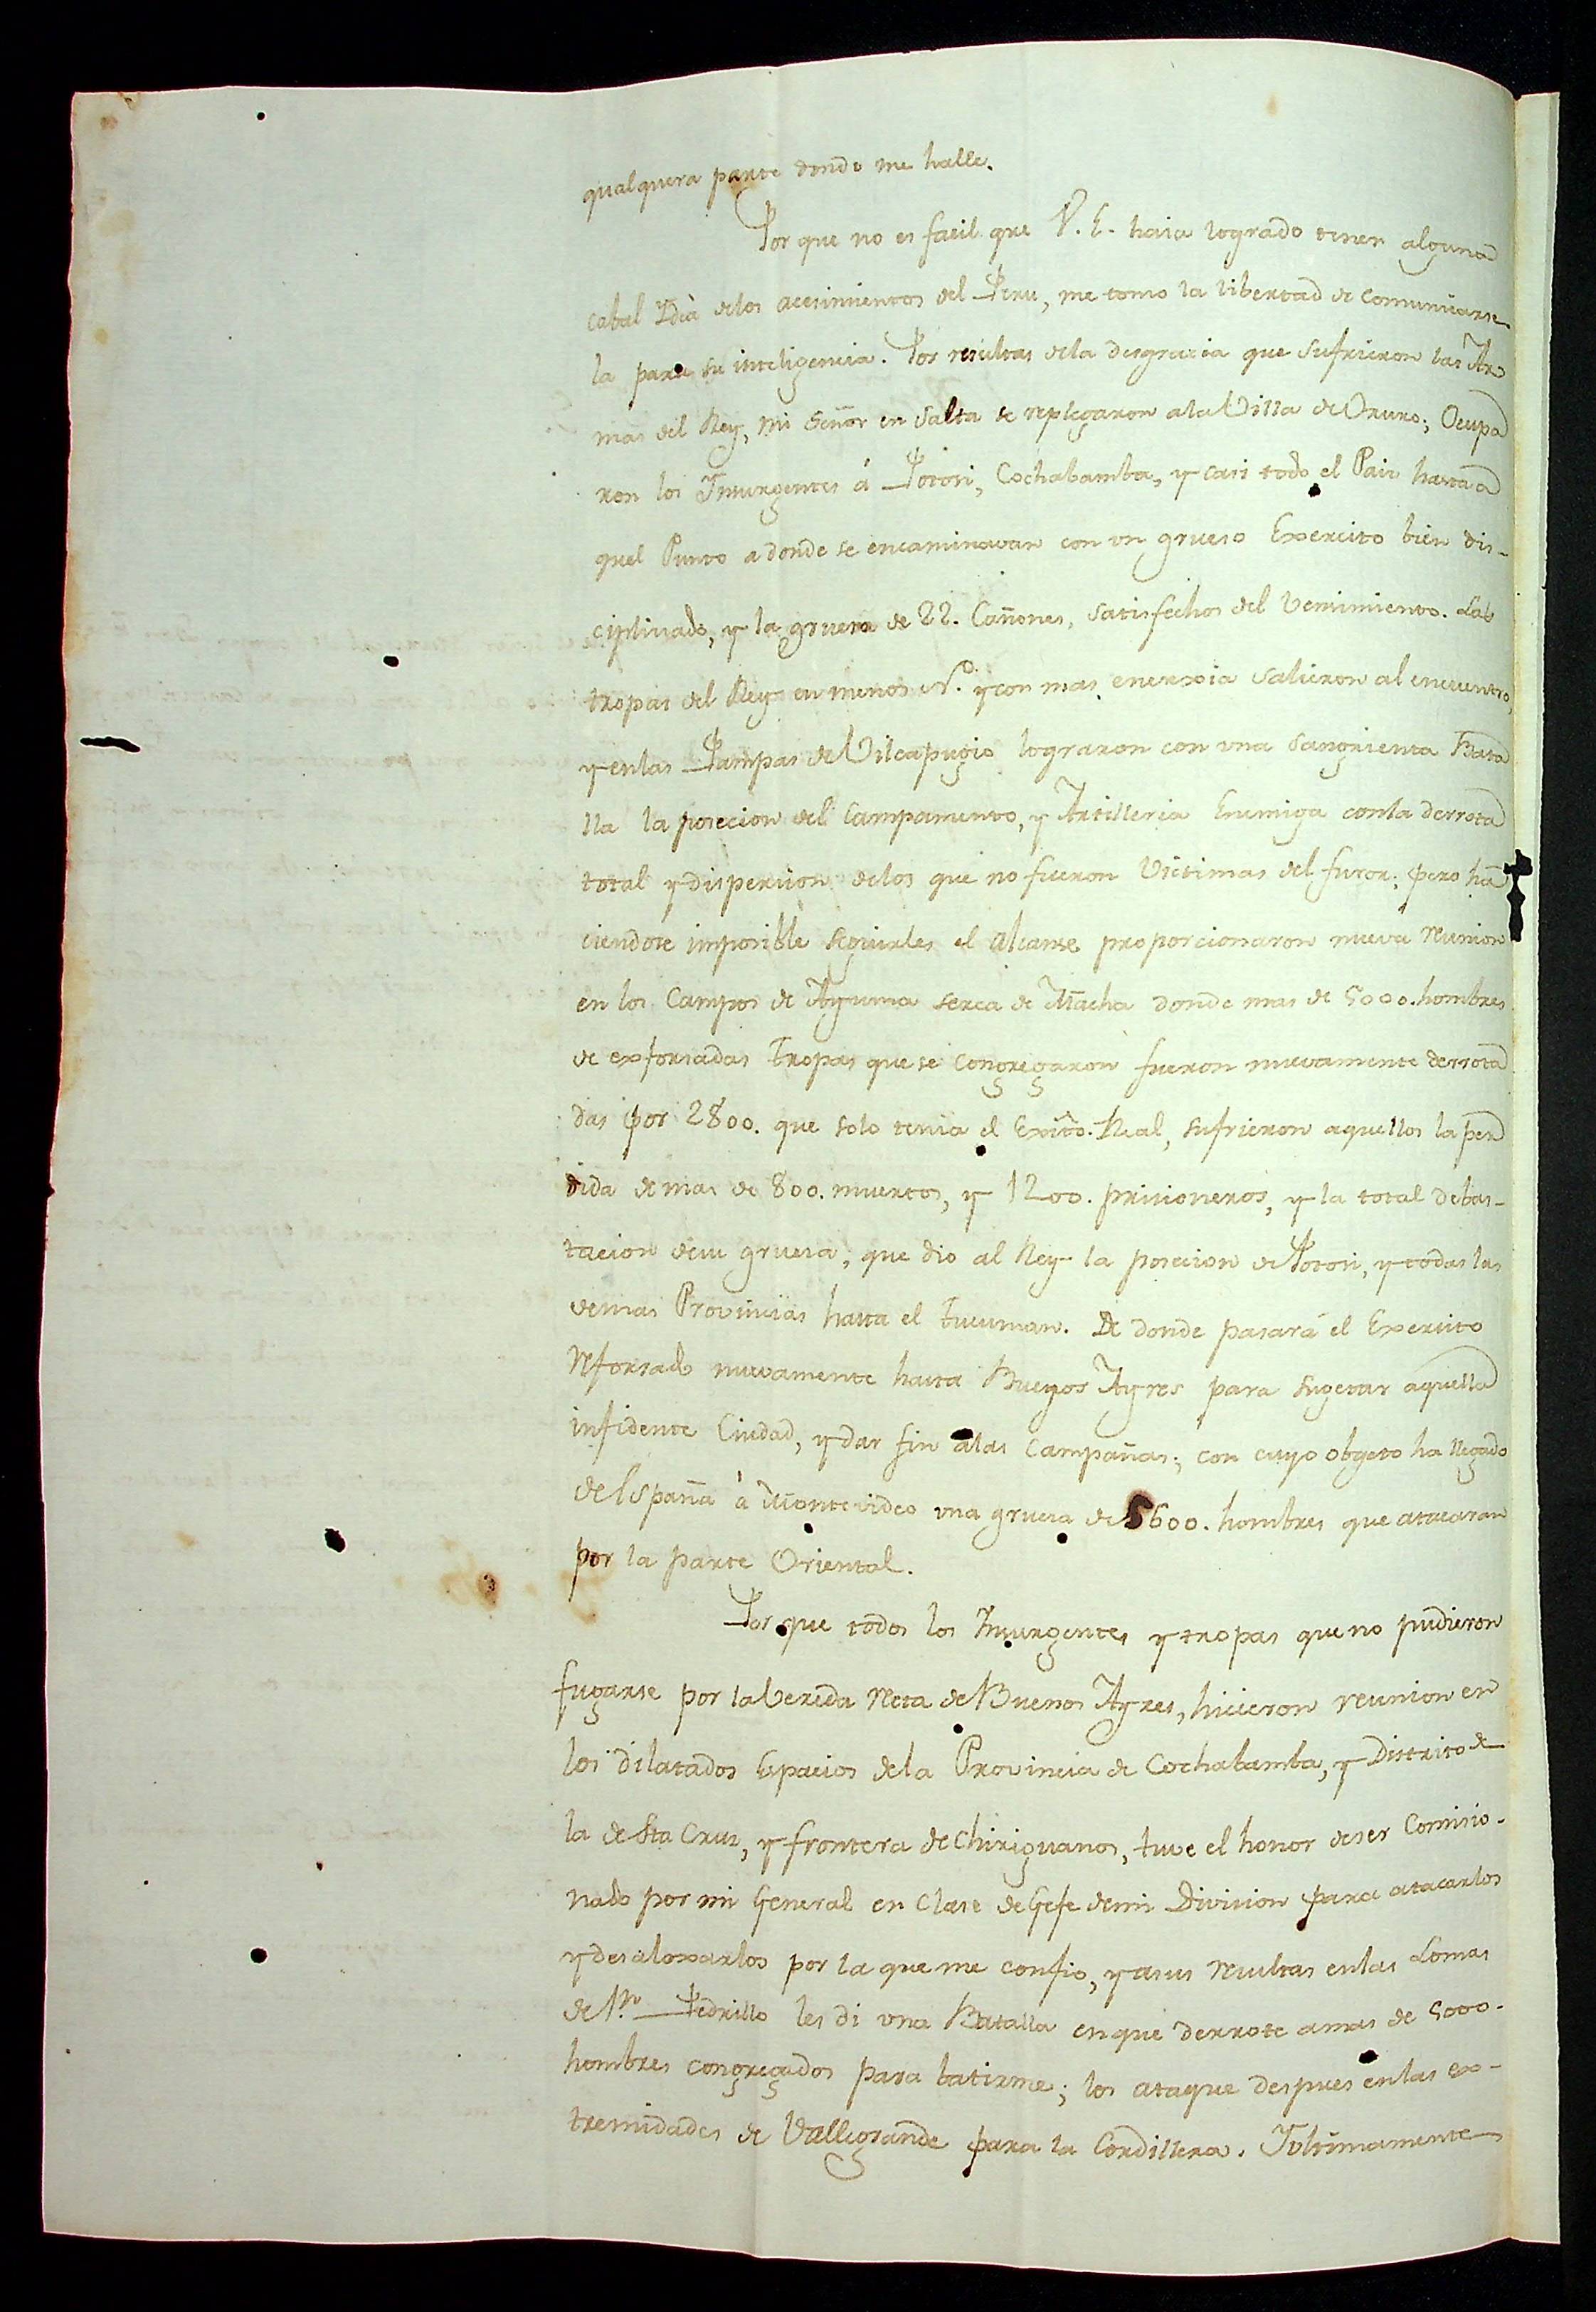 qualquera parte donde me halle.
Por que no es facil que V. E. haia logrado tener alguna
cabal Ydea delos acesimientos del Peru, me tomo la libertad de comunicarse
la para su inteligencia. Por resultas dela desgracia que sufrieron las Ar
mas del Rey, mi Señor en Salta se replegaron ala Villa de Oruro; Ocupa
ron los Insurgentes á Potosi, Cochabamba, y casi todo el Pais hasta a
quel Punto a donde se encaminavan con un grueso Exercito bien dis-
ciplinado, y la gruesa de 22. Cañones, satisfechos del Vencimiento. Las
tropas del Rey en menos N.º y con mas enerxia salieron al encuentro,
y enlas Pampas de Vilcapugio lograron con una sangrienta Bata
lla la posecion del Campamento, y Artilleria Enemiga conla derrota
total y dispersion delos que no fueron Victimas del furor; pero ha
ciendose imposible seguirles el alcanse proporcionaron nueva reunion
en los Campos de Ayuma serca de Macha donde mas de 5000. hombres
de exforsadas tropas que se congregaron fueron nuevamente derrota
das por 2800. que solo tenia el Exto. Real, sufrieron aquellos la per
dida de mas de 800. muertos, y 1200. pricioneros, y la total debas-
tacion desu gruesa, que dio al Rey la posecion de Potosi, y todas las
demas Provincias hasta el Tucuman. De donde pasará el Exercito
reforsado nuevamente hasta Buenos Ayres para sugetar aquella
infidente Ciudad, y dar fin alas campañas; con cuyo obgeto ha llegado
de España á Montevideo una gruesa de 5600. hombres que atacaran
por la parte Oriental.
Por que todos los Insurgentes y tropas que no pudieron
fugarse por la Vereda Recta de Buenos Ayres, hicieron reunion en
los dilatados Espacios dela Provincia de Cochabamba, y Distrito de
la de Sta Cruz, y frontera de Chiriguanos, tuve el honor de ser Comicio-
nado por mi General en Clase de Gefe demi Divicion para atacarlos
y desaloxarlos por la que me confio, y asus resultas enlas Lomas
de Sn. Pedrillo les di una Batalla en que derrote amas de 5000.
hombres congregados para batirme; los ataque despues enlas ex-
tremidades de Vallegrande para la Cordillera. Yultimamente